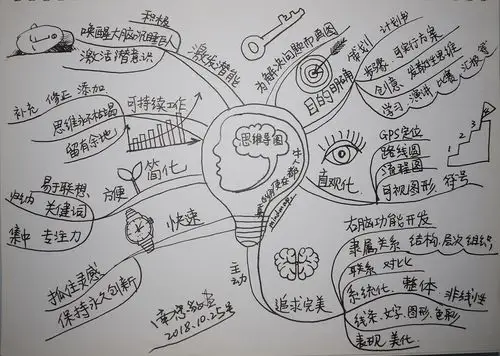 积极
唤醒大脑沉睡巨人
激活潜意识
激发潜能
为解决问题而画图
目的明确
策划
计划书
可执行方案
创意
发散性思维
学习
演讲
比赛
汇报
补充
修正
添加
思维永不枯竭
留有余地
可持续工作
思维导图
mindmap
直观化
GPS定位
路线图
流程图
可视图形
符号
1
2
3
简化
方便
易于联想
关键词
归纳
集中
专注力
快速
抓住灵感
保持永久创新
主动
追求完美
右脑功能开发
隶属关系
结构
层次
组织
联系
对比
系统化
整体
非线性
线条
文字
图形
色彩
表现
美化
2018.10.25号